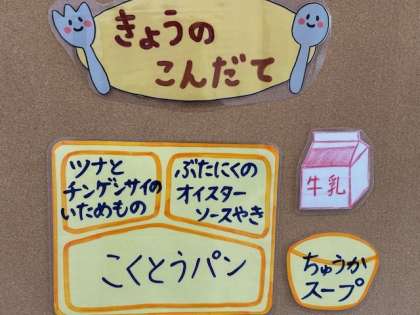 きょうの
こんだて
ツナと
チンゲンサイの
いためもの
ぶたにくの
オイスター
ソースやき
こくとうパン
牛乳
ちゅうか
スープ